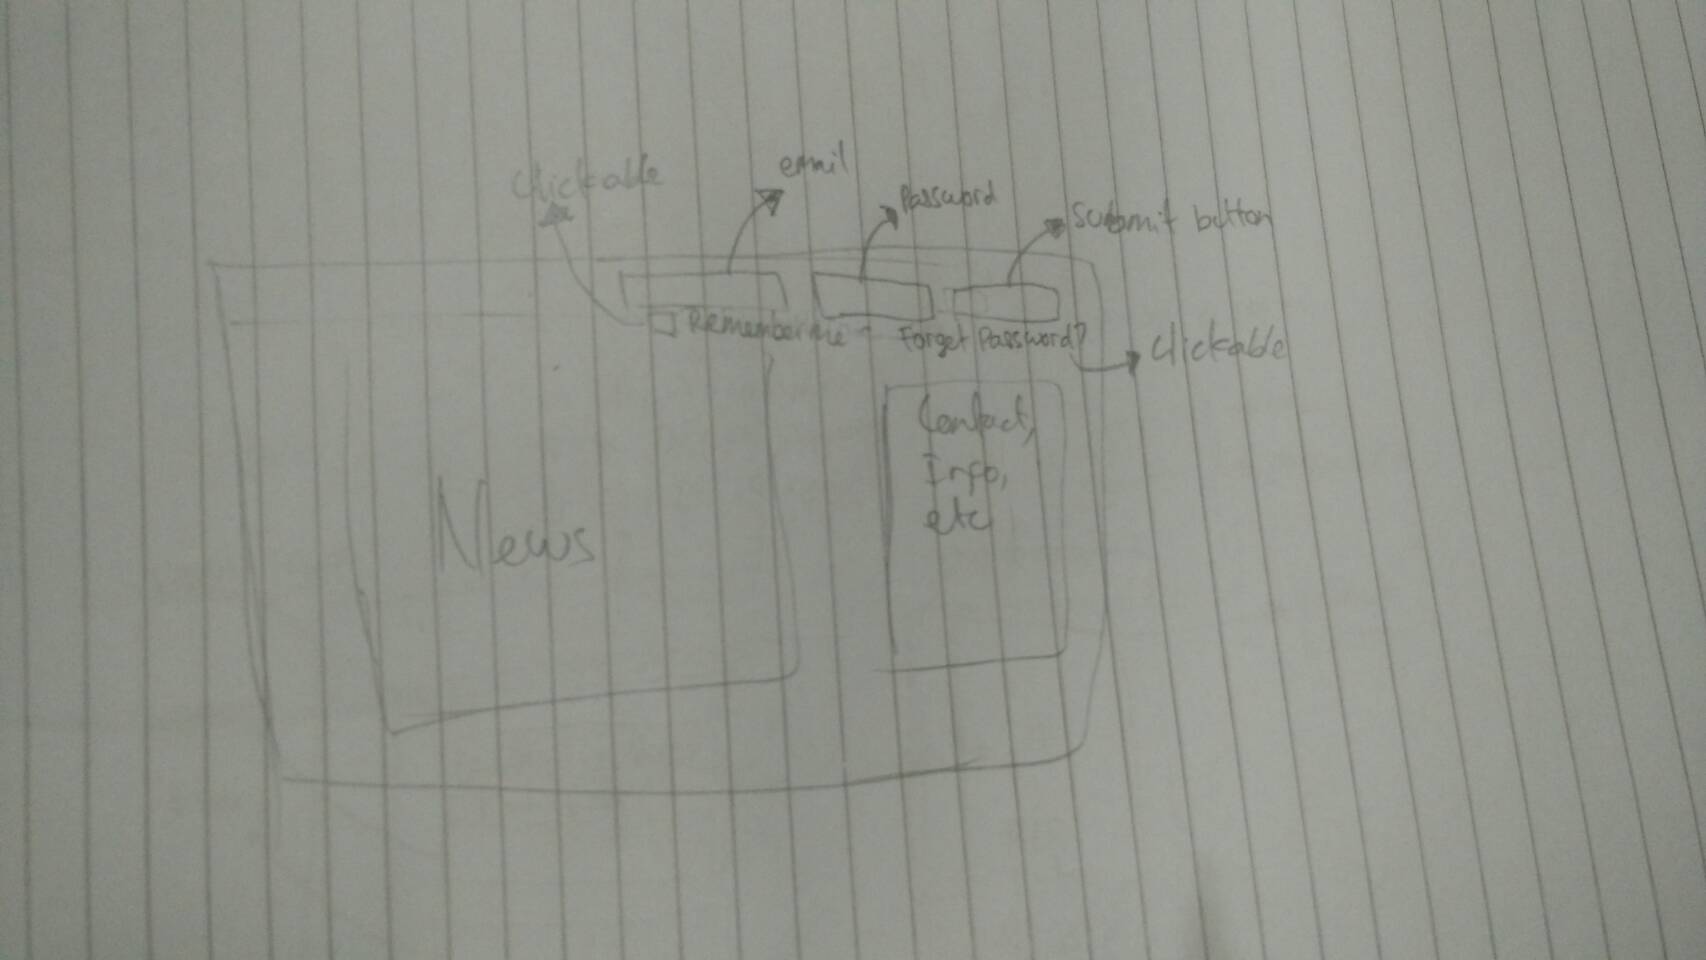 Clickable
email
Password
Submit button
Remember me
Forget Password?
Clickable
News
Contact,
Info,
etc